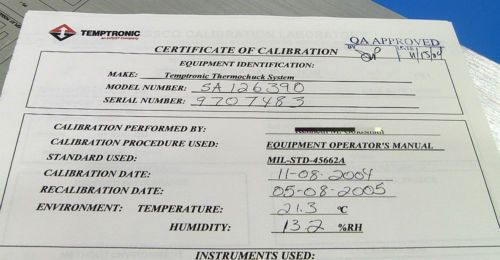 TEMPTRONIC
an inTEST Company
CERTIFICATE OF CALIBRATION
QA APPROVED
BY
DATE
EQUIPMENT IDENTIFICATION:
MAKE: Temptronic Thermochuck System
MODEL NUMBER: SA126390
SERIAL NUMBER: 9707483
CALIBRATION PERFORMED BY:
CALIBRATION PROCEDURE USED: EQUIPMENT OPERATOR'S MANUAL
STANDARD USED: MIL-STD-45662A
CALIBRATION DATE: 11-08-2004
RECALIBRATION DATE: 05-08-2005
ENVIRONMENT: TEMPERATURE: 21.3 °C
HUMIDITY: 13.2 %RH
INSTRUMENTS USED: